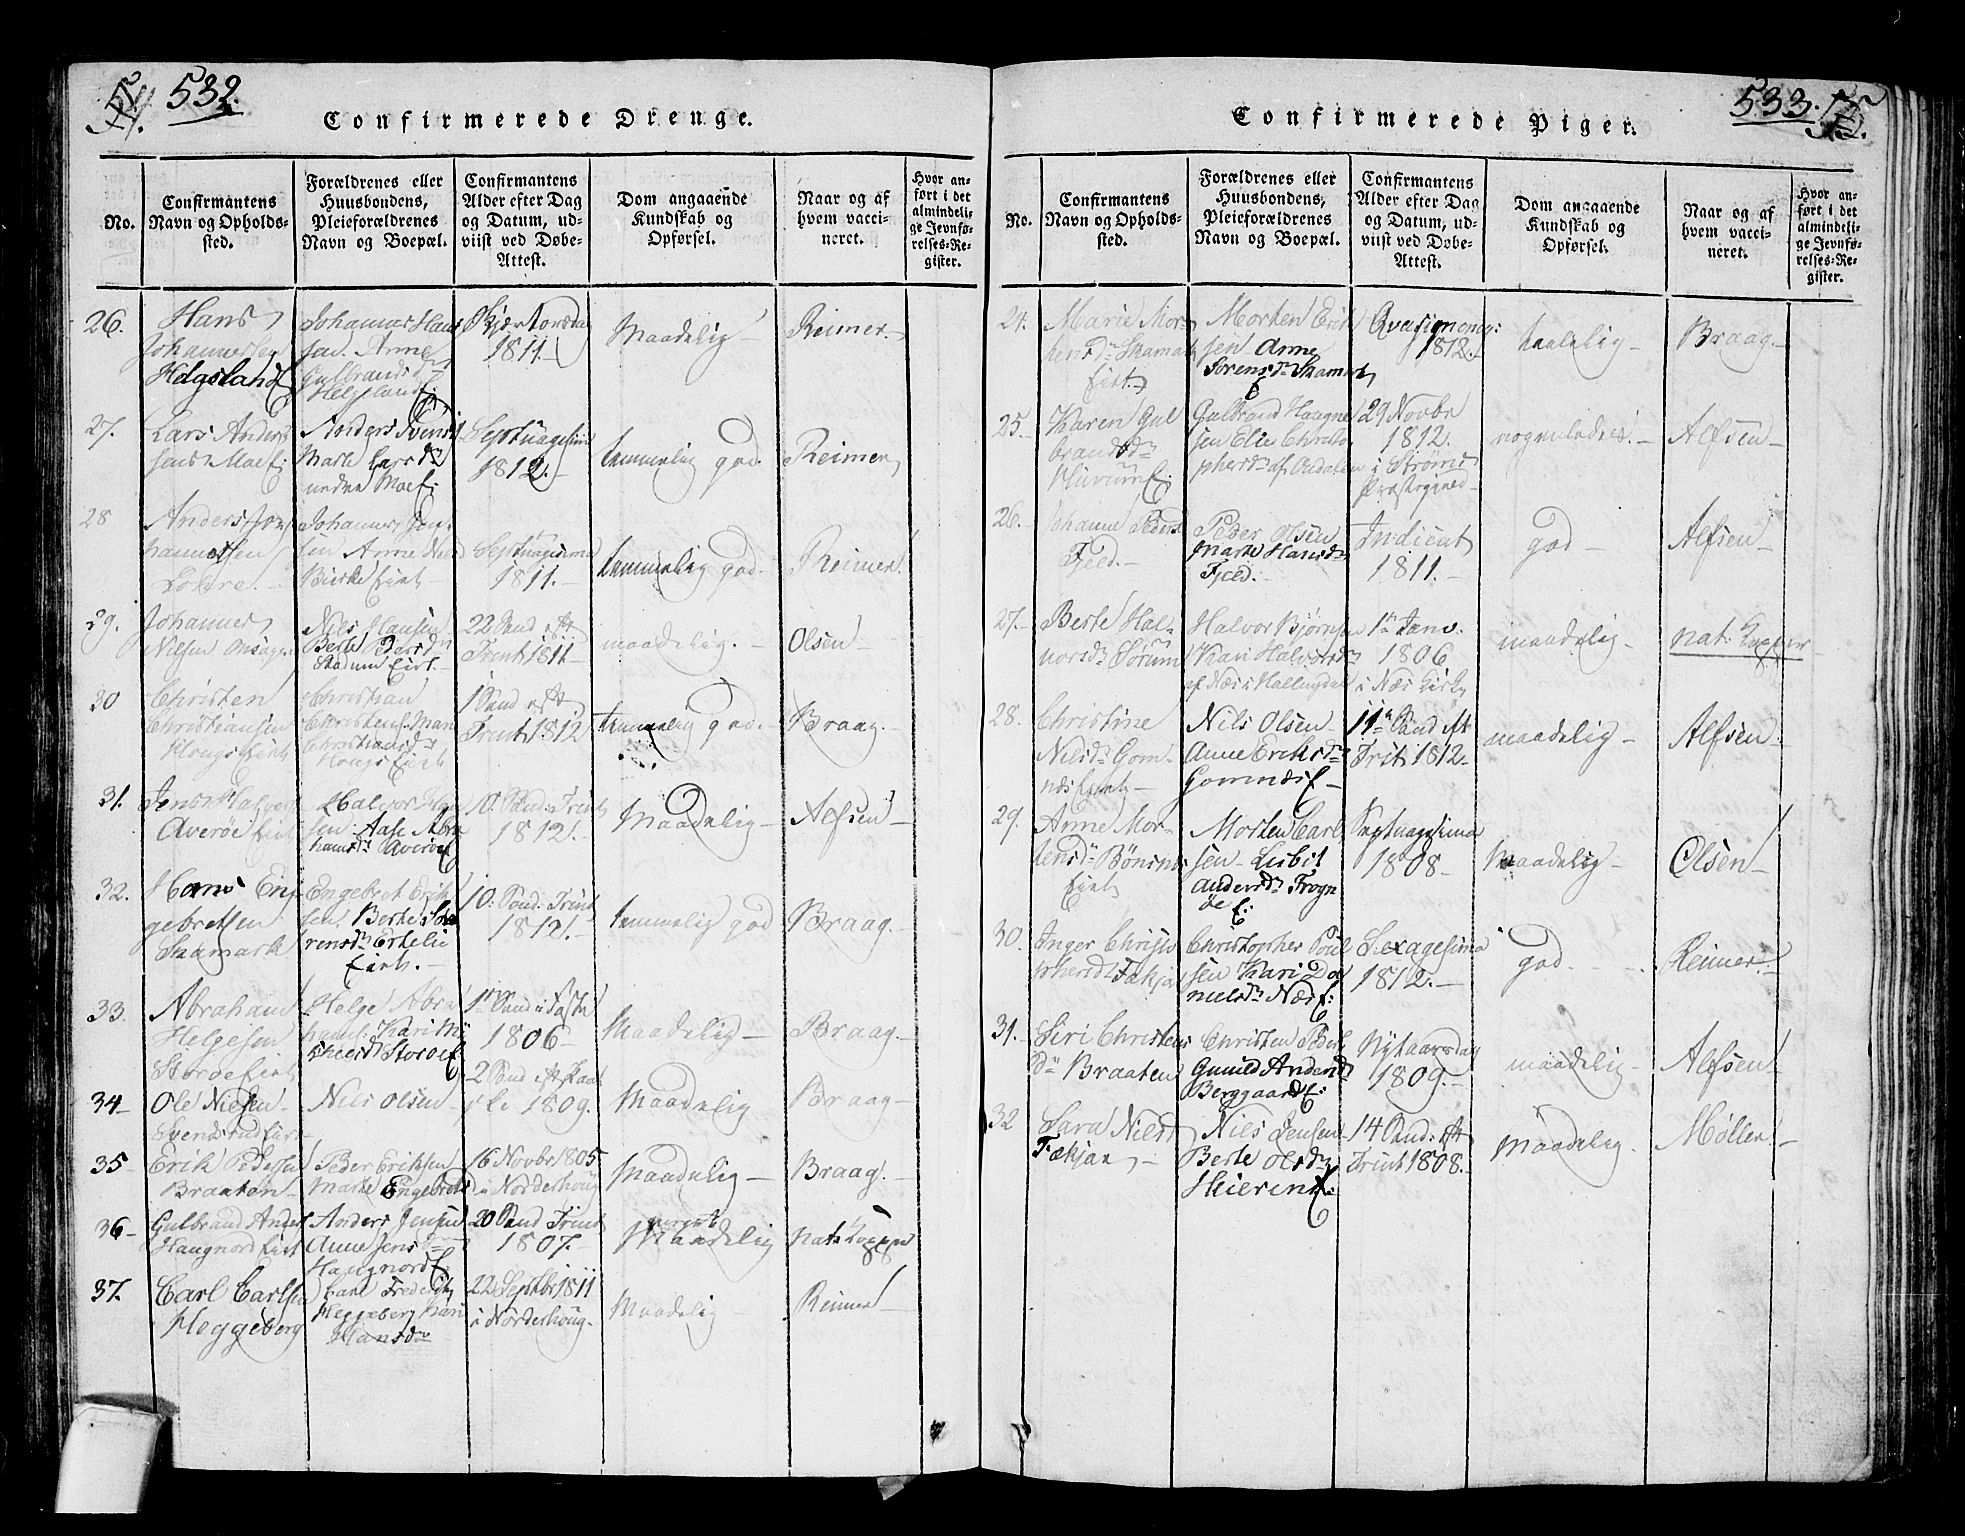 532.
Confirmerede Drenge.
No.
Confirmantens
Navn og Opholds-
sted.
Forældrenes eller
Huusbondens,
Pleieforældrenes
Navn og Boepæl.
Confirmantens
Alder efter Dag
og Datum, ud-
viist ved Døbe-
Attest.
Dom angaaende
Kundskab og
Opførsel.
Naar og af
hvem vacci-
neret.
Hvor an-
ført i det
almindeli-
ge Jevnfø-
relses-Re-
gister.
26.
Hans
Johannesen
Helgeland
Johannes Hans
sen. Anne
Gulbrands
Skjærtorsdag
1811.
Maadelig
Reimer.
27.
Lars Anders
sens Moe
Anders Svens
Marte Lars dr
nedre Moe
Septuagesima
1812.
temmelig god.
Reimer
28
Anders Jo
hannessen
Johannes
sen Anne Niels
Septuagesima
1811.
temmelig god.
Reimer.
29.
Johannes
Nielsen
Niels Hansen
Berte Peders dr
22 Sønd eft
Trinit 1811
maadelig.
Olsen
30
Christen
Christiansen
Christian
Christens. Mari
Christiansdr
1 Sønd eft
Trinit 1812
temmelig god.
Braag.
31.
Jens Halvors
Averøe
Halvor
sen. Aase Abra
hamsdr Averøe
10. Sønd. Trinit
1812.
Maadelig
Alfsen
32.
Hans En
gebretsen
Skamark
Engebret Erik
sen. Berte Sø
rensdr
10. Sønd. Trinit
1812.
temmelig god
Braag.
33.
Abraham
Helgesen
Storøe
Helge Abra
hams. Kari
Storøe
1 Sønd i Faste
1806
Maadelig
Braag.
34
Ole Nielsen
Svendsrud
Niels Olsen
2 Sønd eft Paa
ske 1809.
Maadelig
Braag
35
Erik Pedersen
Braaten
Peder Eriksen
Marte Engebrets
16 Novbr 1805
i Norderhoug
Maadelig
Braag.
36
Gulbrand Anders
Haugnord
Anders Jensen
Anne Jens dr
Haugnord
20 Sønd Trinit
1807.
Maadelig
Nat: Kopper
37.
Carl Carlsen
Heggeberg
Carl Frederik
Heggeberg Kari
Hansdr
22 Septbr 1811
i Norderhoug.
Maadelig
Reimer
533.
Confirmerede Piger.
No.
Confirmantens
Navn og Opholds-
sted.
Forældrenes eller
Huusbondens,
Pleieforældrenes
Navn og Boepæl.
Confirmantens
Alder efter Dag
og Datum, ud-
viist ved Døbe-
Attest.
Dom angaaende
Kundskab og
Opførsel.
Naar og af
hvem vacci-
neret.
Hvor an-
ført i det
almindeli-
ge Jevnfø-
relses-Re-
gister.
24.
Marie Mor-
tensdr Skamark
Morten Erik
sen Anne
Sørensdr Skamark
Qvasimodog:
1812.
taalelig
Braag.
25.
Karen Gul
brandsdr
Gulbrand Haagen
sen Elie Christo
phersdr af Aadalen
29 Novbr
1812.
i Strøms
Præstegjeld
nogenledes.
Alfsen
26.
Johanne Peders
Fjeld.
Peder Olsen
Marte Hansdr
Fjeld.
Indicat
1811.
god
Alfsen
27.
Berte Hal-
vorsdr Sørum
Halvor Bjørnsen
Kari Halvorsdr
af Næs i Hallingdal
1 Janv.
1806
i Næs Kirke
maadelig
nat: Kopper
28.
Christine
Nielsdr Gom
næs
Niels Olsen
Anne Eriksdr
Gomnæs
11 Sønd eft
Trit 1812
maadelig
Alfsen
29.
Anne Mor-
tensdr Bønsnæs
Morten Carl
sen Lisbet
Andersdr Frogn
øe
Septuagesima
1808
Maadelig
Olsen
30.
Inger Christo
phersdr Fækjan
Christopher Poul
sen Kari Da
nielsdr Næs
Sexagesima
1812.
god.
Reimer
31.
Siri Christens
dr Braaten
Christen Peders
Gunild Andersdr
Berggaard
Nytaarsdag
1809.
maadelig
Alfsen
32
Sara Niels
Fækjan
Niels Jensen
Berte Olsdr
Heieren
14 Sønd. eft
Trinit 1808.
Maadelig.
Møller